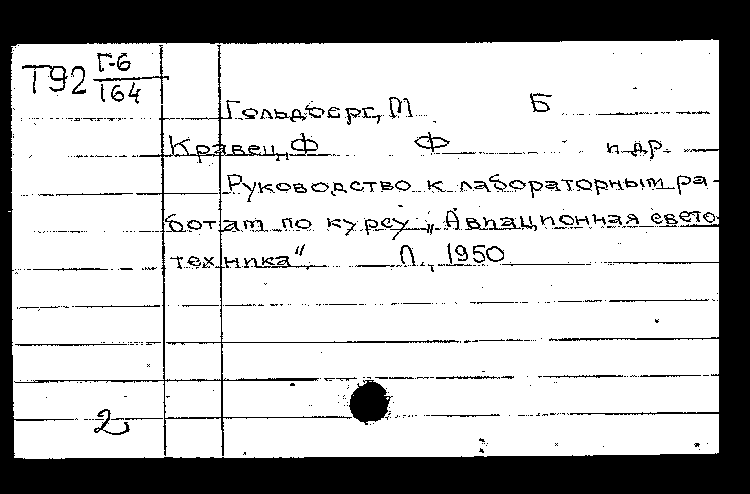 Т92 Г-6
164
Гольдберг, М Б
Кравец, Ф Ф и др.
Руководство к лабораторным ра-
ботам по курсу „Авиационная свето-
техника“. Л., 1950
2